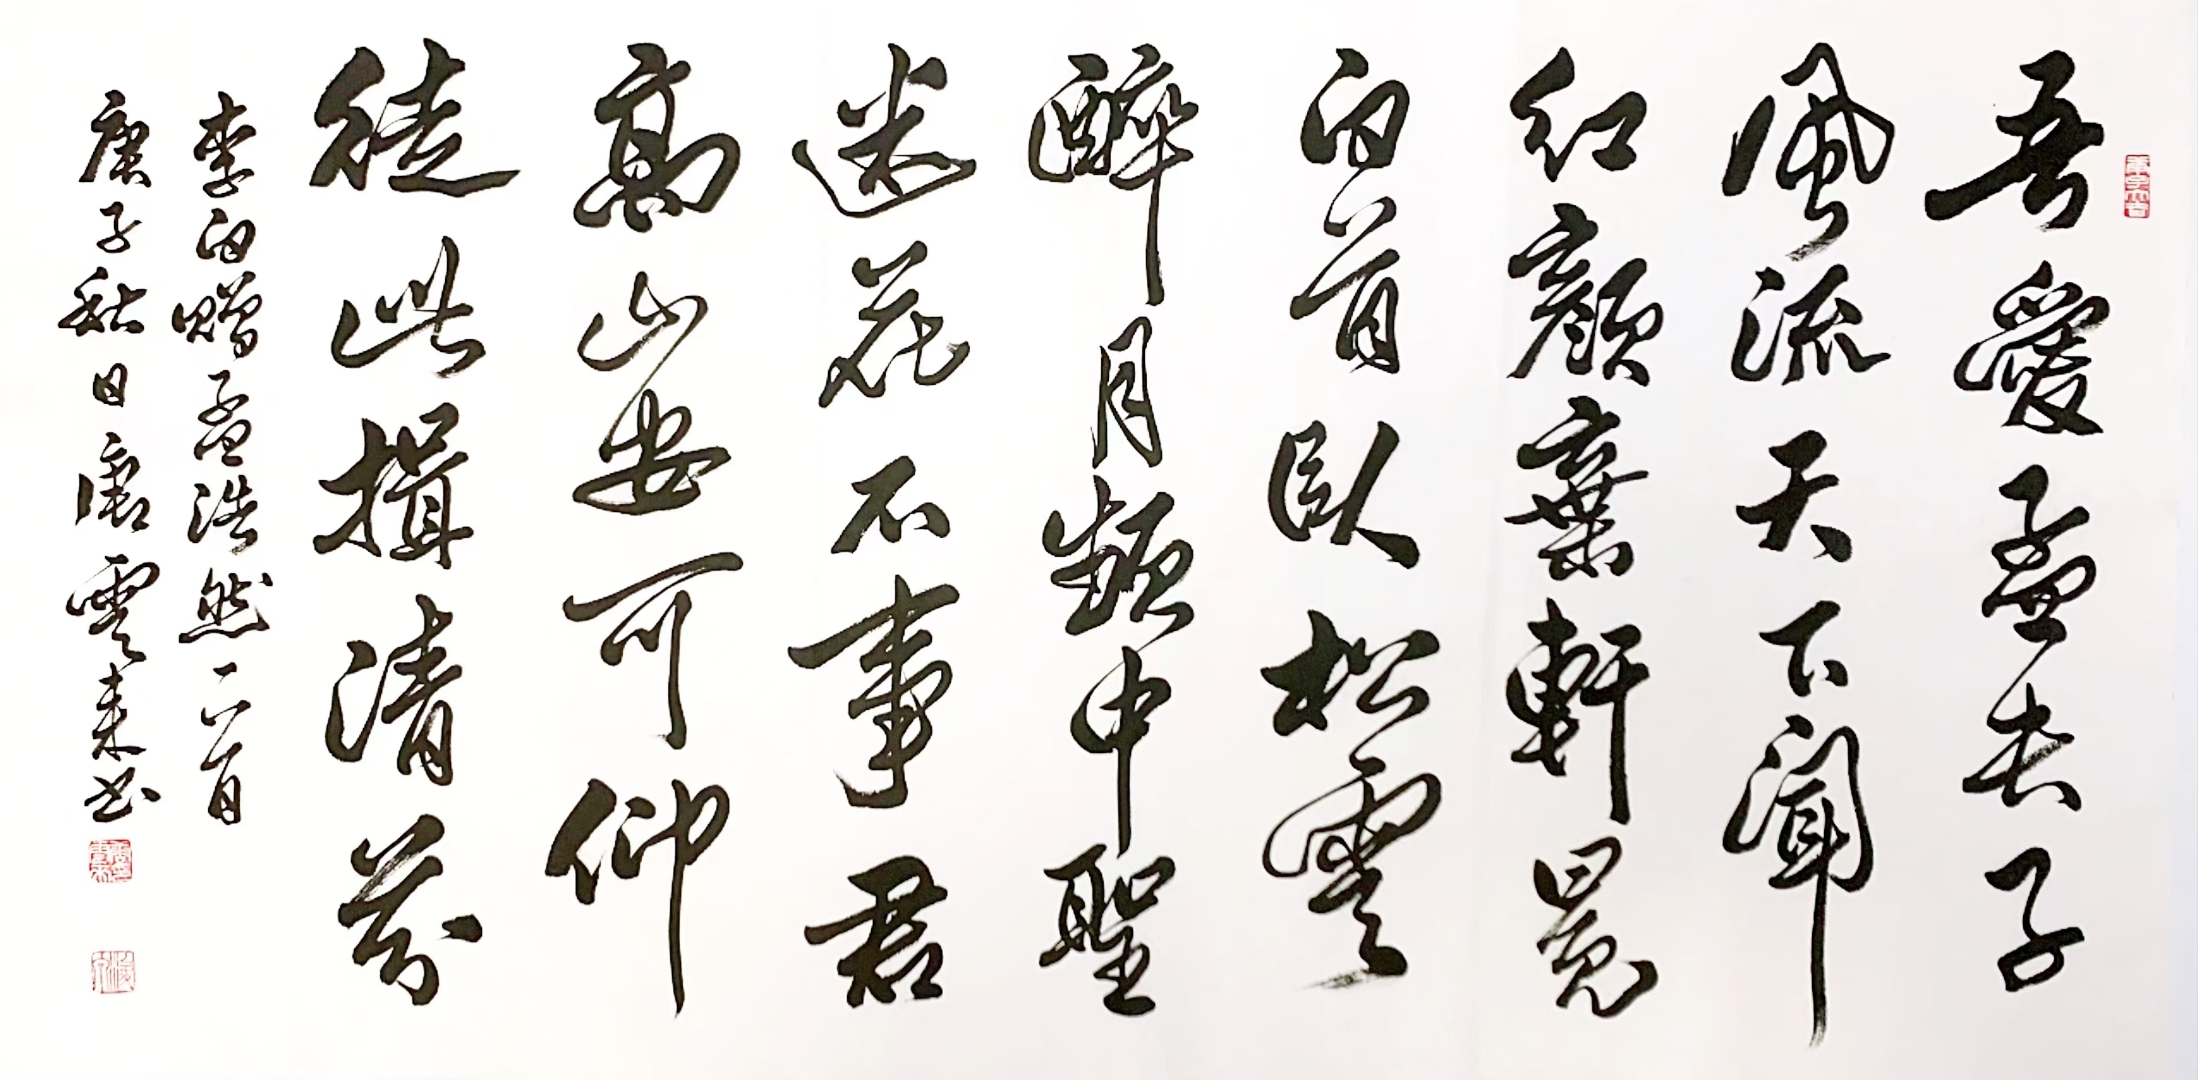 吾愛孟夫子
風流天下聞
紅顏棄軒冕
白首臥松雲
醉月頻中聖
迷花不事君
高山安可仰
徒此揖清芬
李白贈孟浩然一首
庚子秋日康雲來书